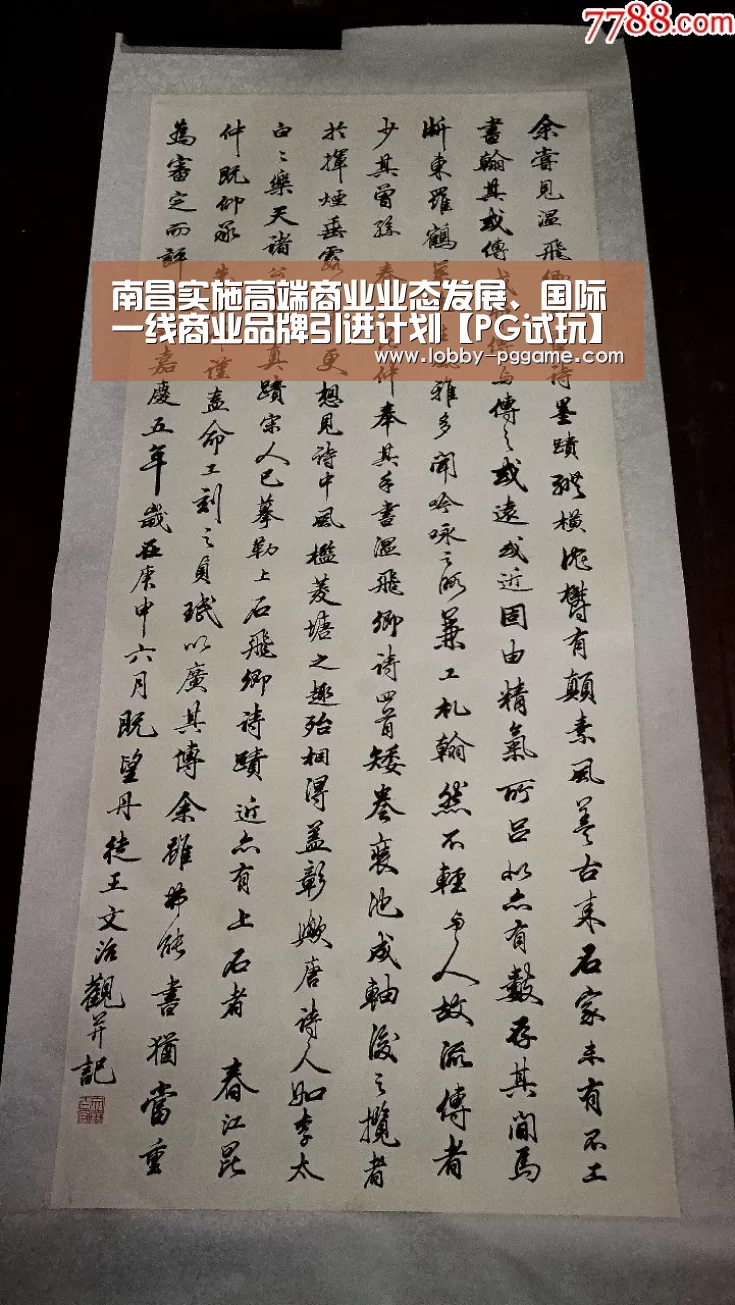 7788.com
南昌实施高端商业业态发展、国际
一线商业品牌引进计划【PG试玩】
www.lobby-pggame.com
余嘗見溫飛卿詩墨蹟縱橫沈鬱有顛素風蓋古來石家未有不工
書翰其或傳或傳与傳之或遠或近固由精氣所呂然亦有數存其間焉
浙東羅鶴雅多聞吟咏之所兼工札翰然不輕与人故流傳者
少其曾孫春仲奉其手書溫飛卿詩四首矮卷裝池成軸後之攬者
於揮煙垂露更想見詩中風檻菱塘之趣殆相得益彰歟唐詩人如李太
白〻樂天諸真蹟宋人已摹勒上石飛卿詩蹟近亦有上石者春江昆
仲既仰承謹盡命工刻之貞珉以廣其傳余雖弗能書猶當重
為審定而評嘉慶五年歲在庚申六月既望丹徒王文治觀并記